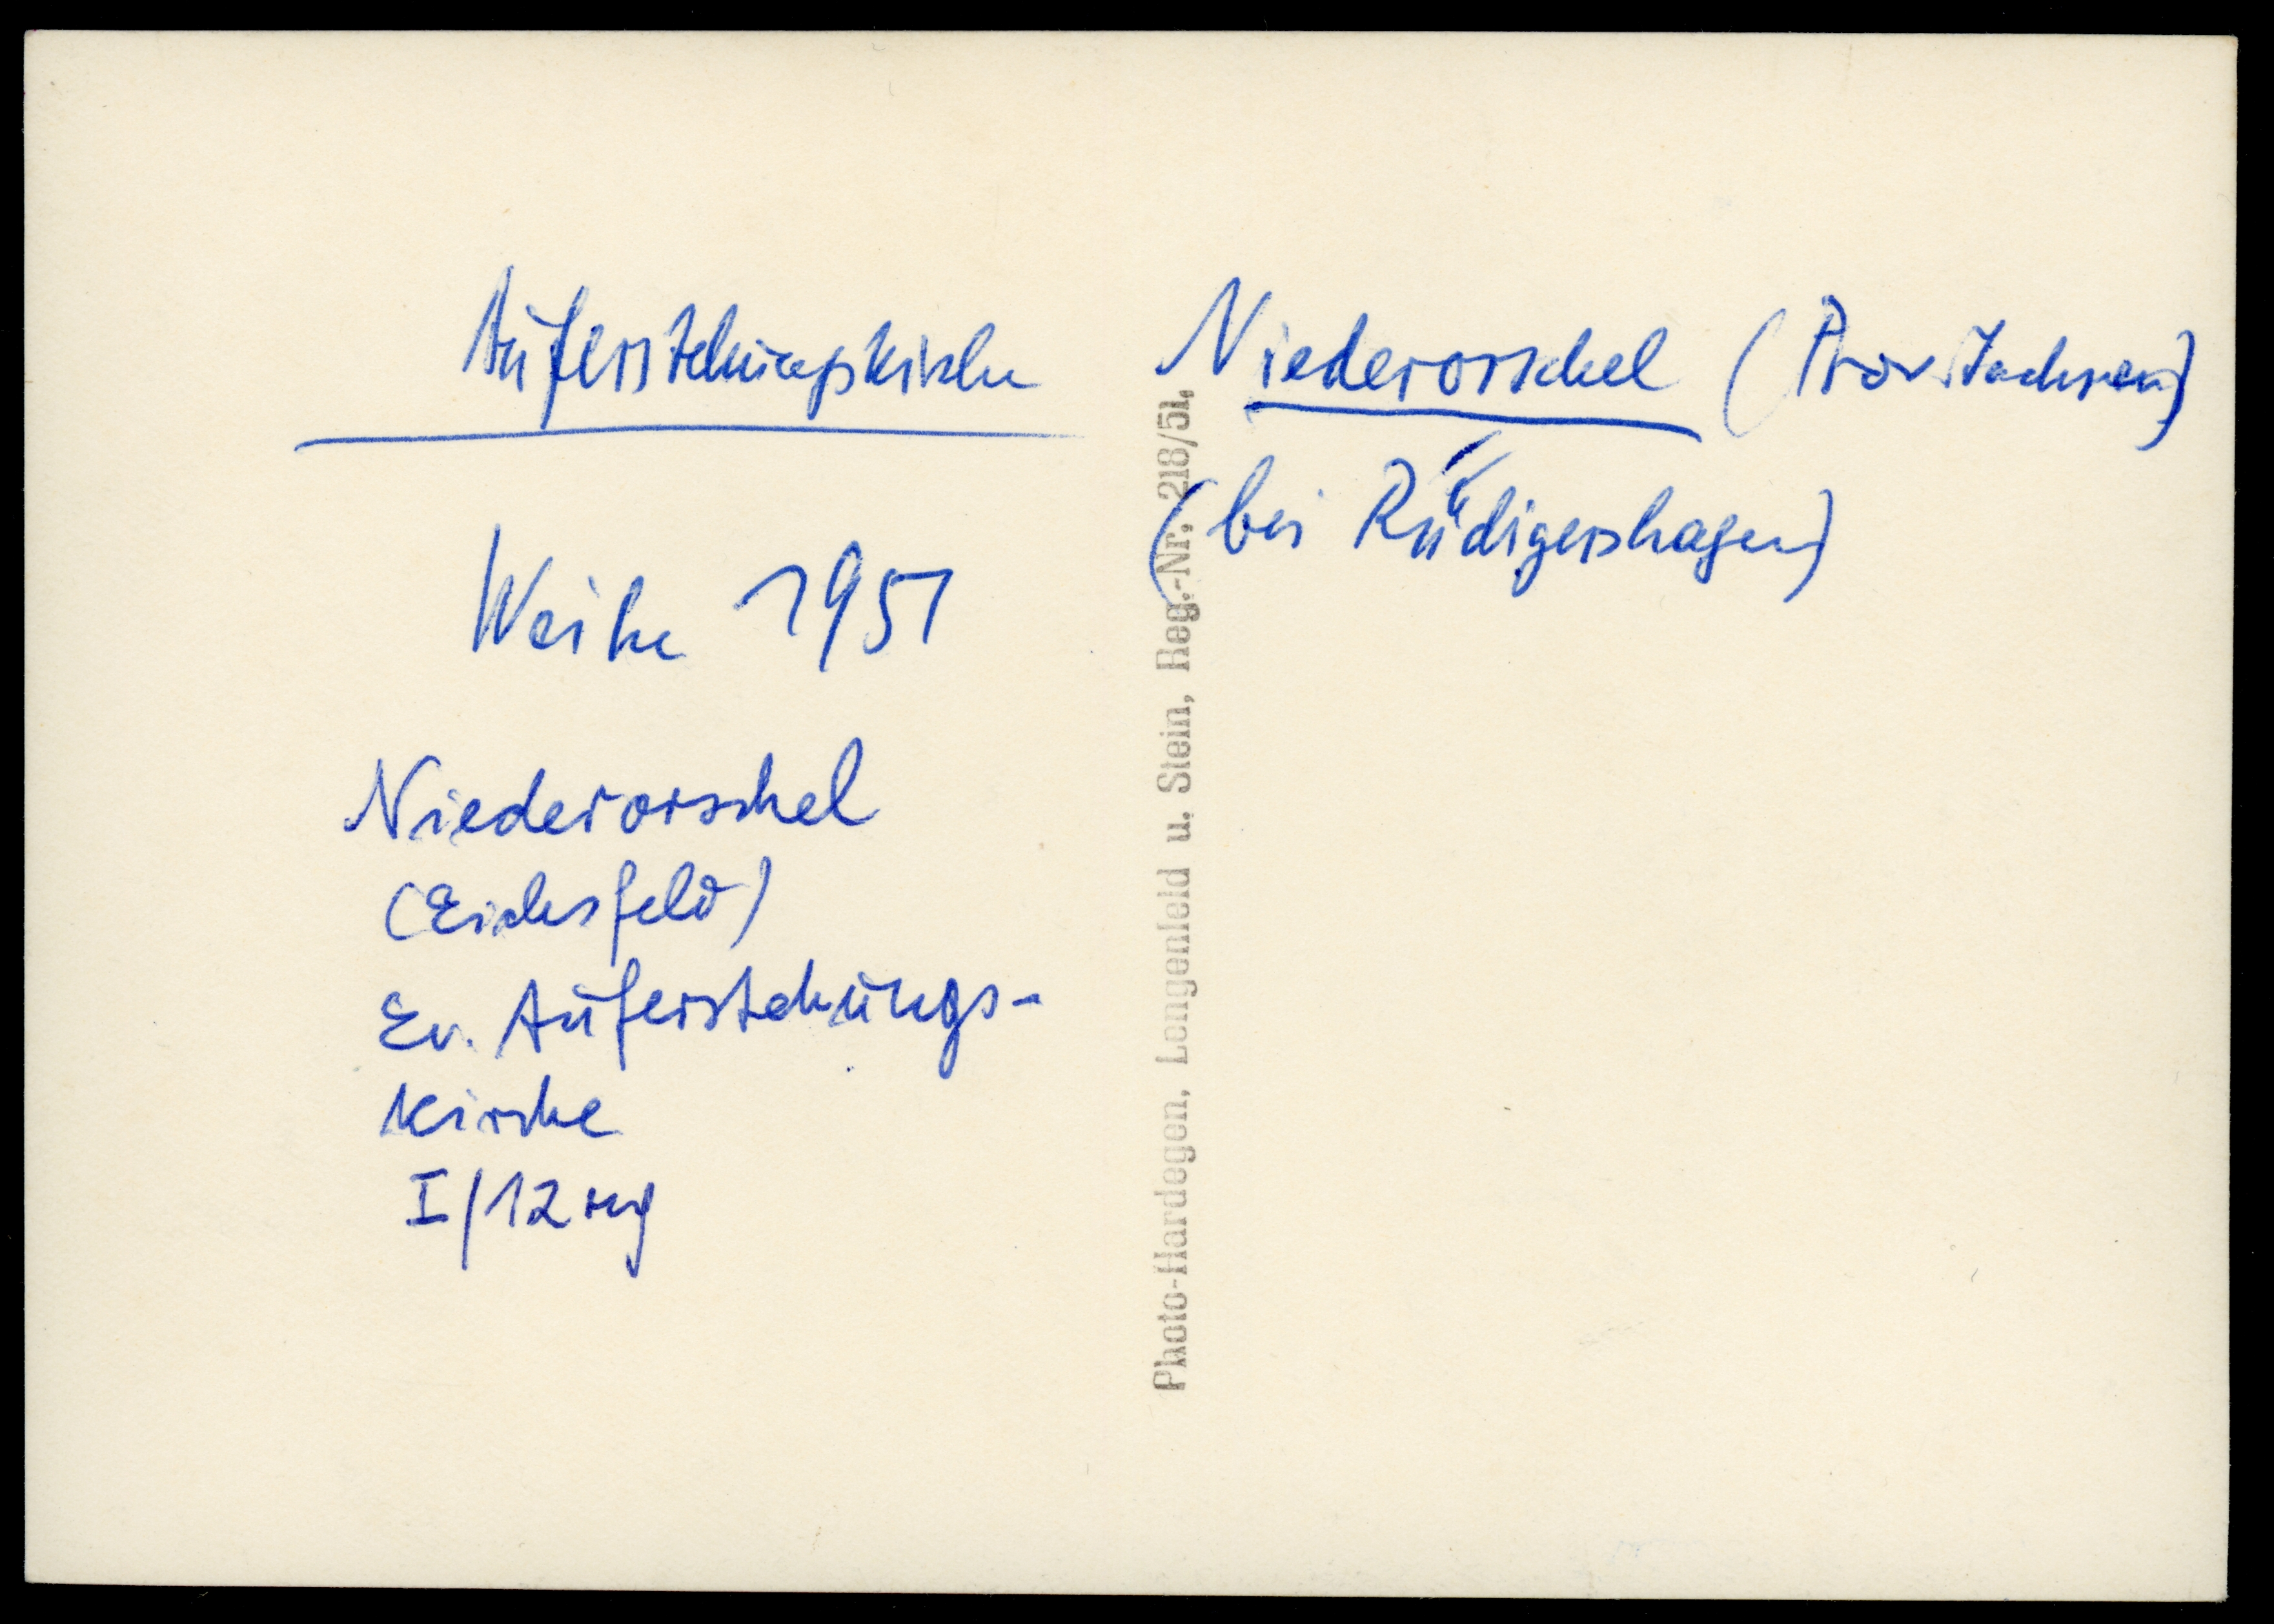 Auferstehungskirche
Weihe 1951
Niederorschel
(Eichsfeld)
Ev. Auferstehungs-
kirche
I/12
Photo-Hardegen, Lengenfeld u. Stein, Reg.-Nr. 218/51,
Niederorschel (Prov. Sachsen)
(bei Rüdigershagen)